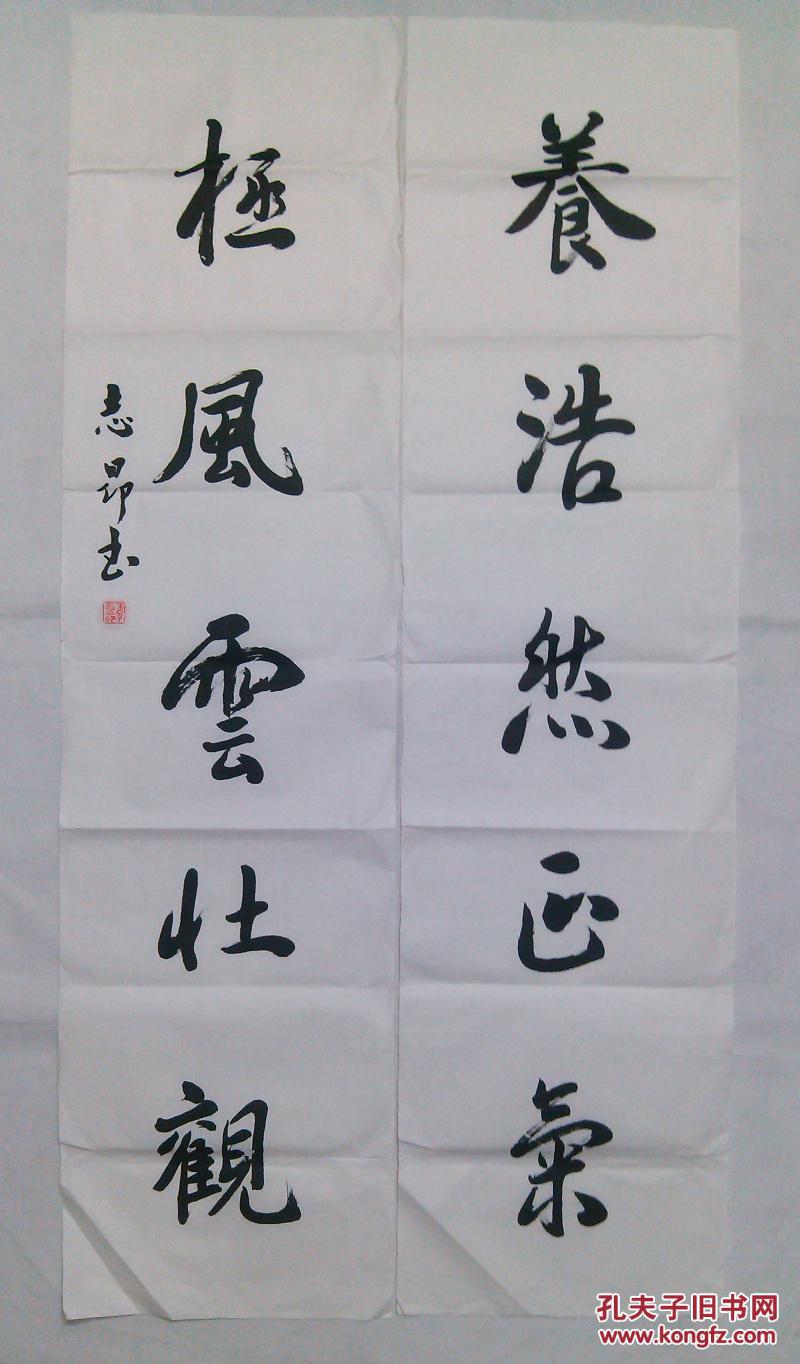 養浩然正氣
極風雲壯觀
志昂书
孔夫子旧书网
www.kongfz.com